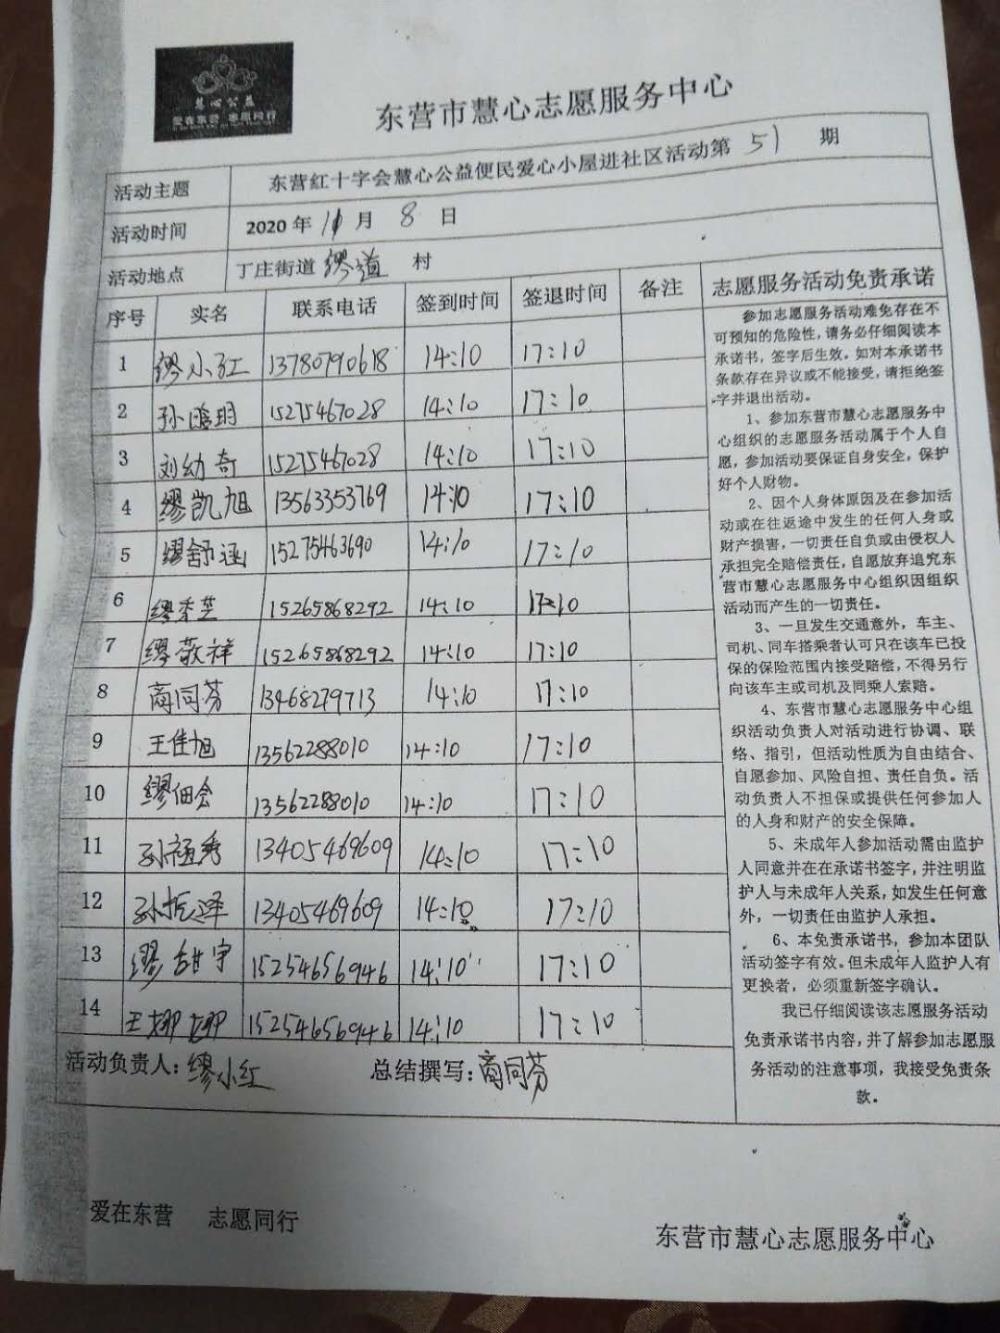 慧心公益
爱在东营 志愿同行
东营市慧心志愿服务中心
活动主题 东营红十字会慧心公益便民爱心小屋进社区活动第 51 期
活动时间 2020 年 11 月 8 日
活动地点 丁庄街道 缪道 村
序号 实名 联系电话 签到时间 签退时间 备注
1 缪小红 13780790618 14:10 17:10
2 孙鹏明 15275467028 14:10 17:10
3 刘幼奇 15275467028 14:10 17:10
4 缪凯旭 13563353769 14:10 17:10
5 缪舒涵 15275463690 14:10 17:10
6 缪秀芝 15265868292 14:10 17:10
7 缪敬祥 15265868292 14:10 17:10
8 商同芬 13468279713 14:10 17:10
9 王佳旭 13562288010 14:10 17:10
10 缪佃会 13562288010 14:10 17:10
11 孙福秀 13405469609 14:10 17:10
12 孙 泽 13405469609 14:10 17:10
13 缪甜宇 15254656946 14:10 17:10
14 王娜娜 15254656946 14:10 17:10
活动负责人:缪小红 总结撰写:商同芬
志愿服务活动免责承诺
参加志愿服务活动难免存在不
可预知的危险性,请务必仔细阅读本
承诺书,签字后生效。如对本承诺书
条款存在异议或不能接受,请拒绝签
字并退出活动。
1、参加东营市慧心志愿服务中
心组织的志愿服务活动属于个人自
愿,参加活动要保证自身安全,保护
好个人财物。
2、因个人身体原因及在参加活
动或在往返途中发生的任何人身或
财产损害,一切责任自负或由侵权人
承担完全赔偿责任,自愿放弃追究东
营市慧心志愿服务中心组织因组织
活动而产生的一切责任。
3、一旦发生交通意外,车主、
司机、同车搭乘者认可只在该车已投
保的保险范围内接受赔偿,不得另行
向该车主或司机及同乘人索赔。
4、东营市慧心志愿服务中心组
织活动负责人对活动进行协调、联
络、指引,但活动性质为自由结合、
自愿参加、风险自担、责任自负。活
动负责人不担保或提供任何参加人
的人身和财产的安全保障。
5、未成年人参加活动需由监护
人同意并在在承诺书签字,并注明监
护人与未成年人关系,如发生任何意
外,一切责任由监护人承担。
6、本免责承诺书,参加本团队
活动签字有效。但未成年人监护人有
更换者,必须重新签字确认。
我已仔细阅读该志愿服务活动
免责承诺书内容,并了解参加志愿服
务活动的注意事项,我接受免责条
款。
爱在东营 志愿同行
东营市慧心志愿服务中心